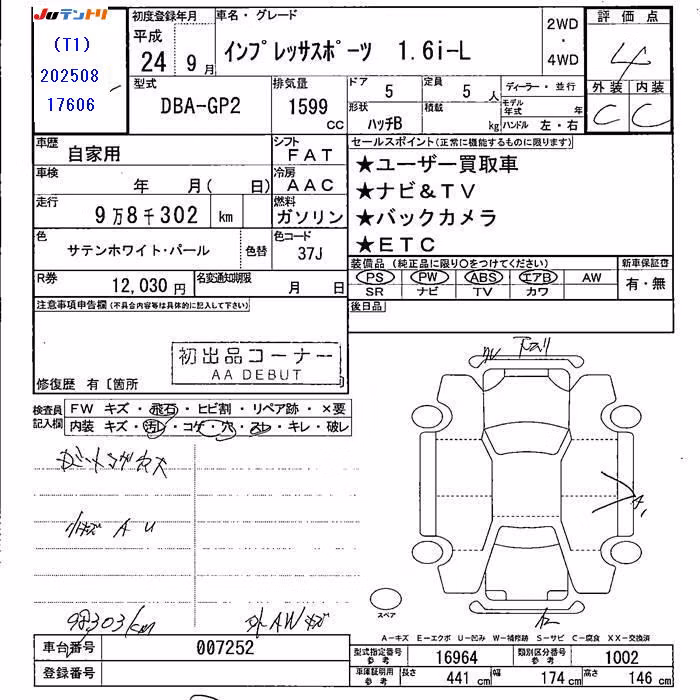 Juテントリ
(T1)
202508
17606
初度登録年月
平成
24年 9月
車名・グレード
インプレッサスポーツ 1.6i-L
2WD
・
4WD
評価点
4
外装 内装
C C
型式
DBA-GP2
排気量
1599
CC
ドア
5
定員
5人
形状
ハッチB
積載
kg
ディーラー・並行
モデル年式 年
ハンドル 左・右
車歴
自家用
シフト
FAT
車検
年 月( 日)
冷房
AAC
走行
9万8千302 km
燃料
ガソリン
色
サテンホワイト・パール
色替
色コード
37J
R券
12,030円
名変通知期限
月 日
セールスポイント(正常に機能するものに限ります)
★ユーザー買取車
★ナビ&TV
★バックカメラ
★ETC
装備品(純正品に限り○をつけてください)
PS PW ABS エアB AW
SR ナビ TV カワ
新車保証書
有・無
後日品
注意事項申告欄(不具合内容等は具体的に記入して下さい)
初出品コーナー
AA DEBUT
修復歴 有〔箇所
検査員記入欄
FW キズ・飛石・ヒビ割・リペア跡・×要
内装 キズ・汚レ・コゲ・穴・スレ・キレ・破レ
小キズ A U
98303km
外AWキズ
下回リ
スペア
A−キズ E−エクボ U−凹み W−補修跡 S−サビ C−腐食 XX−交換済
車台番号
007252
登録番号
型式指定番号
参考
16964
類別区分番号
参考
1002
車庫証明用
参考
長さ 441cm 幅 174cm 高さ 146cm